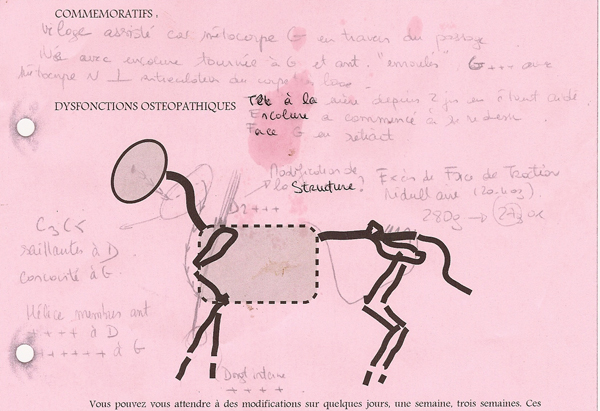 COMMEMORATIFS,
vêlage assisté car métacarpe G en travers du passage
Née avec encolure tournée à G et ant. "enroulés" G+++ avec
métacarpe N ⊥ articulation du carpe
DYSFONCTIONS OSTEOPATHIQUES Tête à la suite depuis 2 jrs en étant aidé.
Encolure a commencé à se redresser
Face G en retrait
Modification de
la Structure.
Exces de Force de Traction
D2+++
280g → 
C3C5
saillantes à D
concavité à G
Hélice membres ant
++++ à D
++++++ à G
Doigt interne
++++
Vous pouvez vous attendre à des modifications sur quelques jours, une semaine, trois semaines. Ces